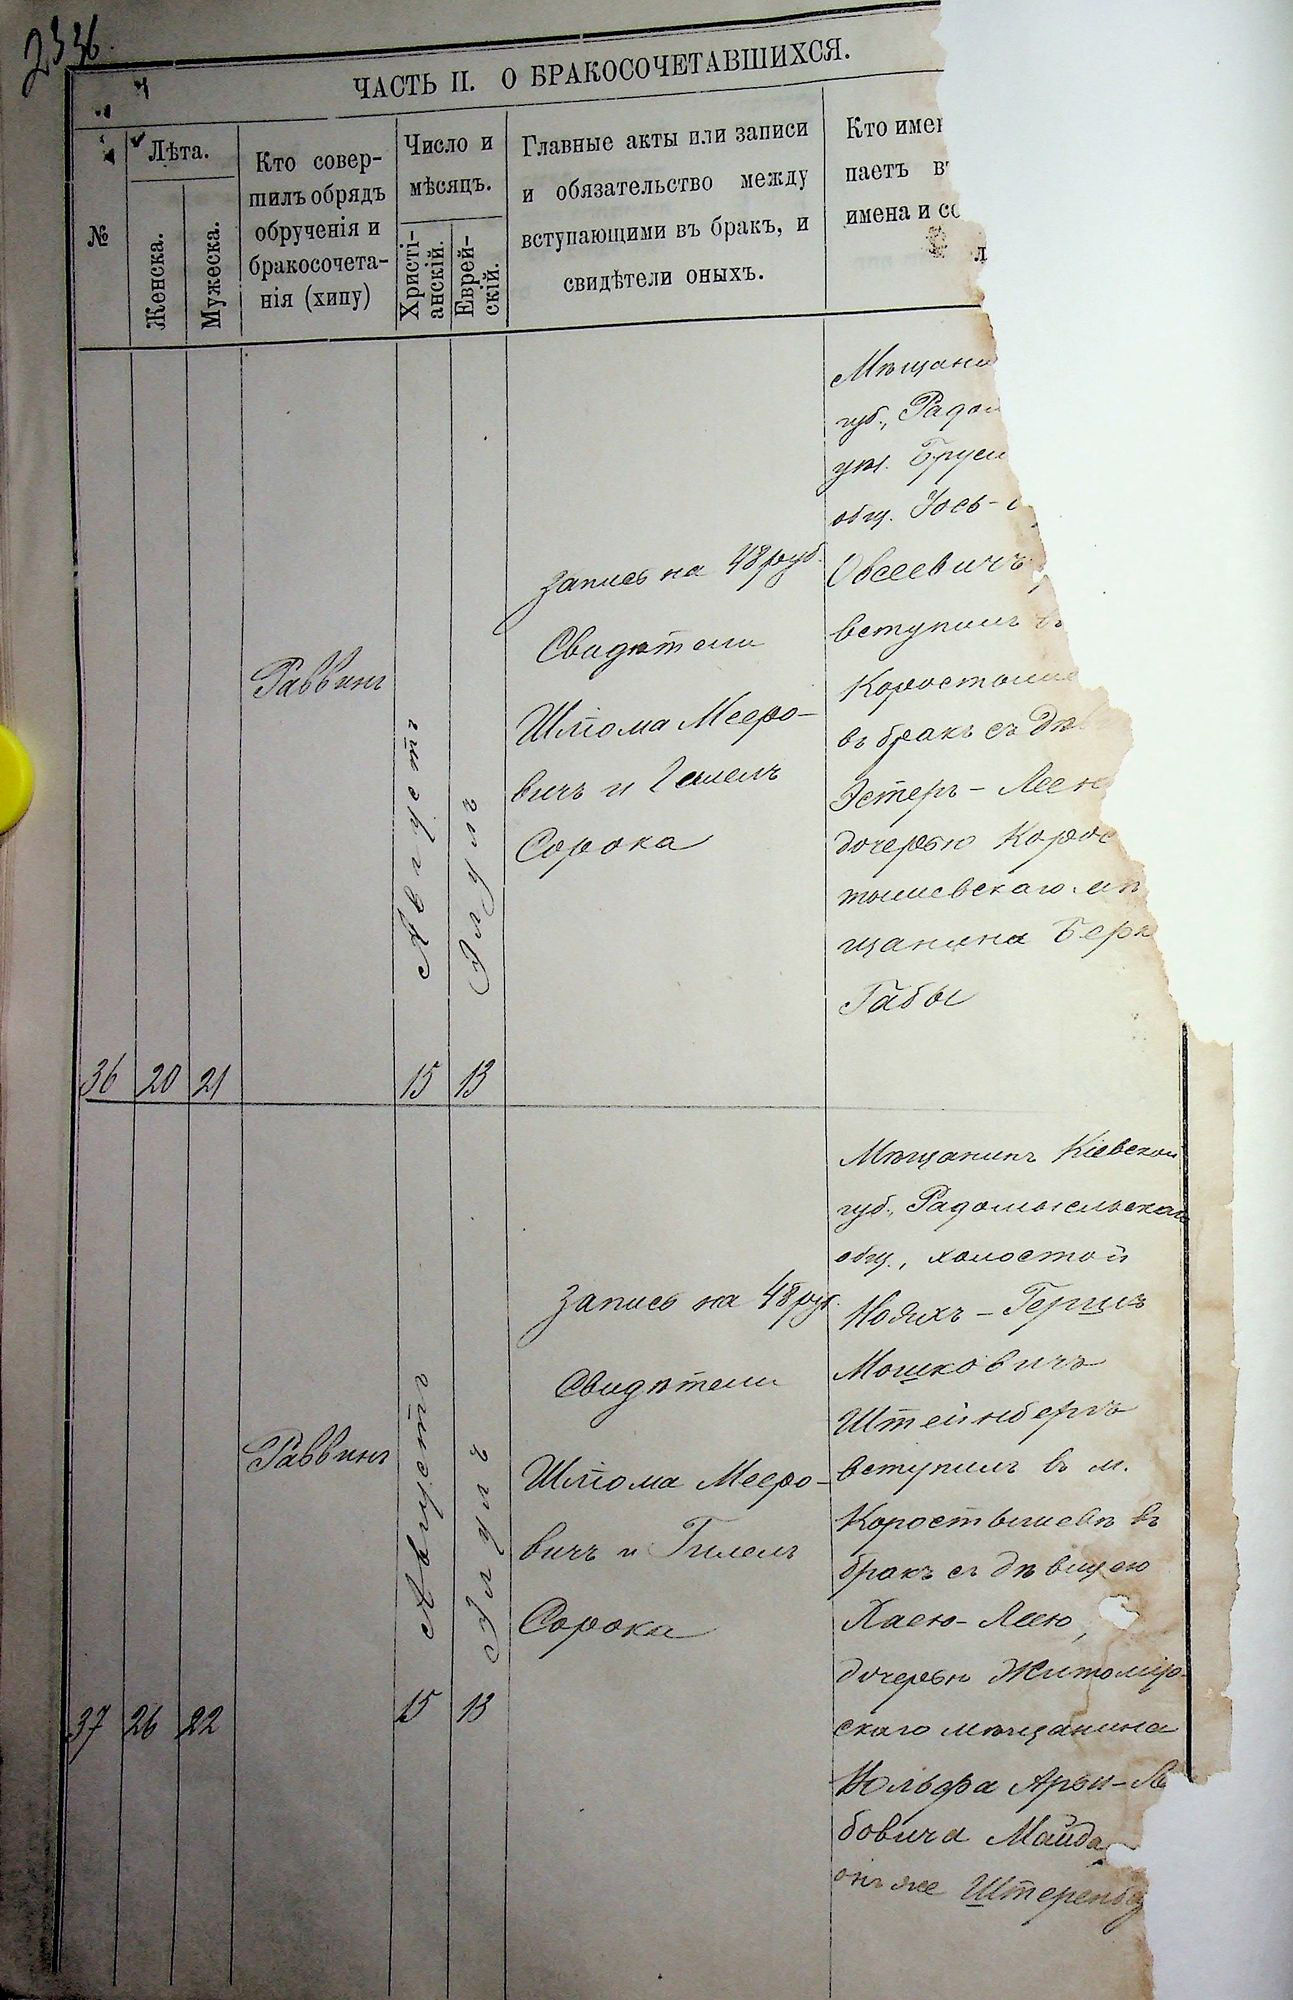 2336.
ЧАСТЬ II. О БРАКОСОЧЕТАВШИХСЯ.
№
Лѣта.
Женска.
Мужеска.
Кто совер-
шилъ обрядъ
обрученія и
бракосочета-
нія (хипу)
Число и
мѣсяцъ.
Христі-
анскій.
Еврей-
скій.
Главные акты или записи
и обязательство между
вступающими въ бракъ, и
свидѣтели оныхъ.
Кто имен
паетъ въ
имена и со
36
20
21
Раввинъ
Августъ
15
Элулъ
13
Запись на 48 руб.
Свидѣтели
Шлiома Мееро-
вичъ и Гилелъ
Сорока
Мѣщани
губ., Радом
ум. Бруси
общ. Іось-
Овсеевичъ
вступилъ въ
Коростыше
въ бракъ съ Дѣв
Эстеръ-Леею
дочерью Корос
тышевскаго мѣ
щанина Берк
Габы
37
26
22
Раввинъ
Августъ
15
Элулъ
13
Запись на 48 руб.
Свидѣтели
Шлiома Мееро-
вичъ и Гилелъ
Сорока
Мѣщанинъ Кіевской
губ., Радомысльской
общ., холостой
Нояхъ-Гершъ
Мошковичъ
Штейнбергъ
вступилъ въ м.
Коростышевѣ въ
бракъ съ дѣвицею
Хаею-Леею,
дочерью Житомір-
скаго мѣщанина
Вольфа Арьи-Ле
бовича Майда
онъ же Штеренбе